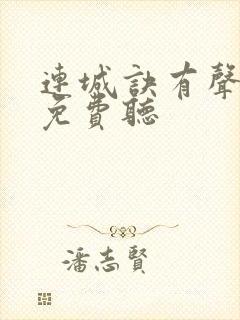 連城訣有聲
免費聽
潘志賢